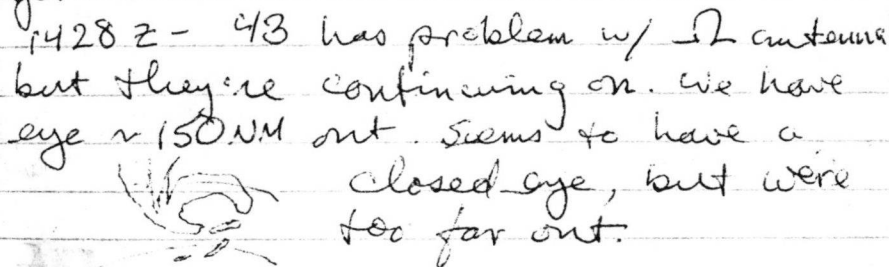 1428 Z - 43 has problem w/ Ω antenna
but they're continuing on. We have
eye ~ 150 NM out. Seems to have a
closed eye, but we're
too far out.